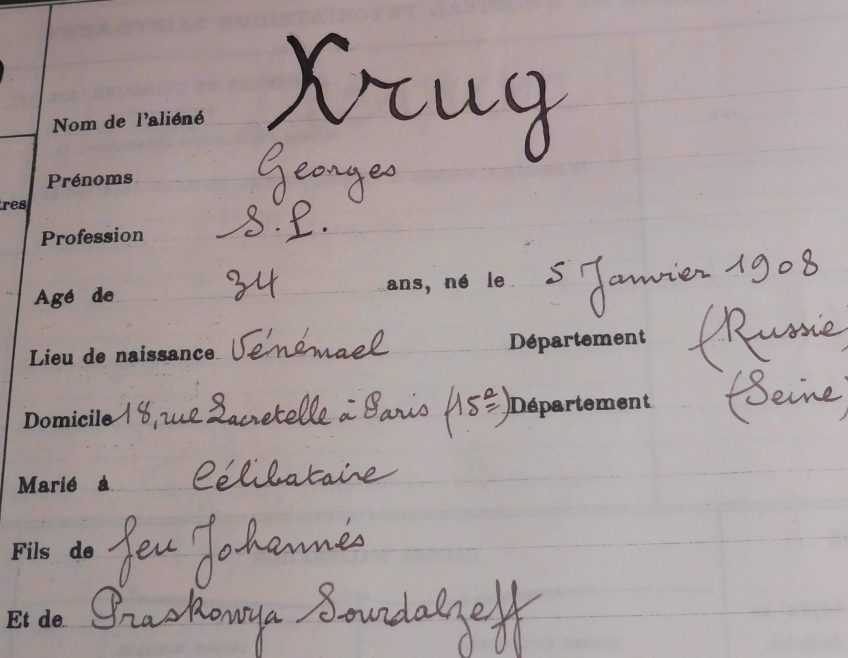 Nom de l'aliéné Krug
Prénoms Georges
tres
Profession S.P.
Agé de 34 ans, né le 5 Janvier 1908
Lieu de naissance Vénémael Département (Russie)
Domicile 18, rue Lacretelle à Paris (15e) Département (Seine)
Marié à Célibataire
Fils de feu Johannés
Et de Praskowya Sourdalzeff